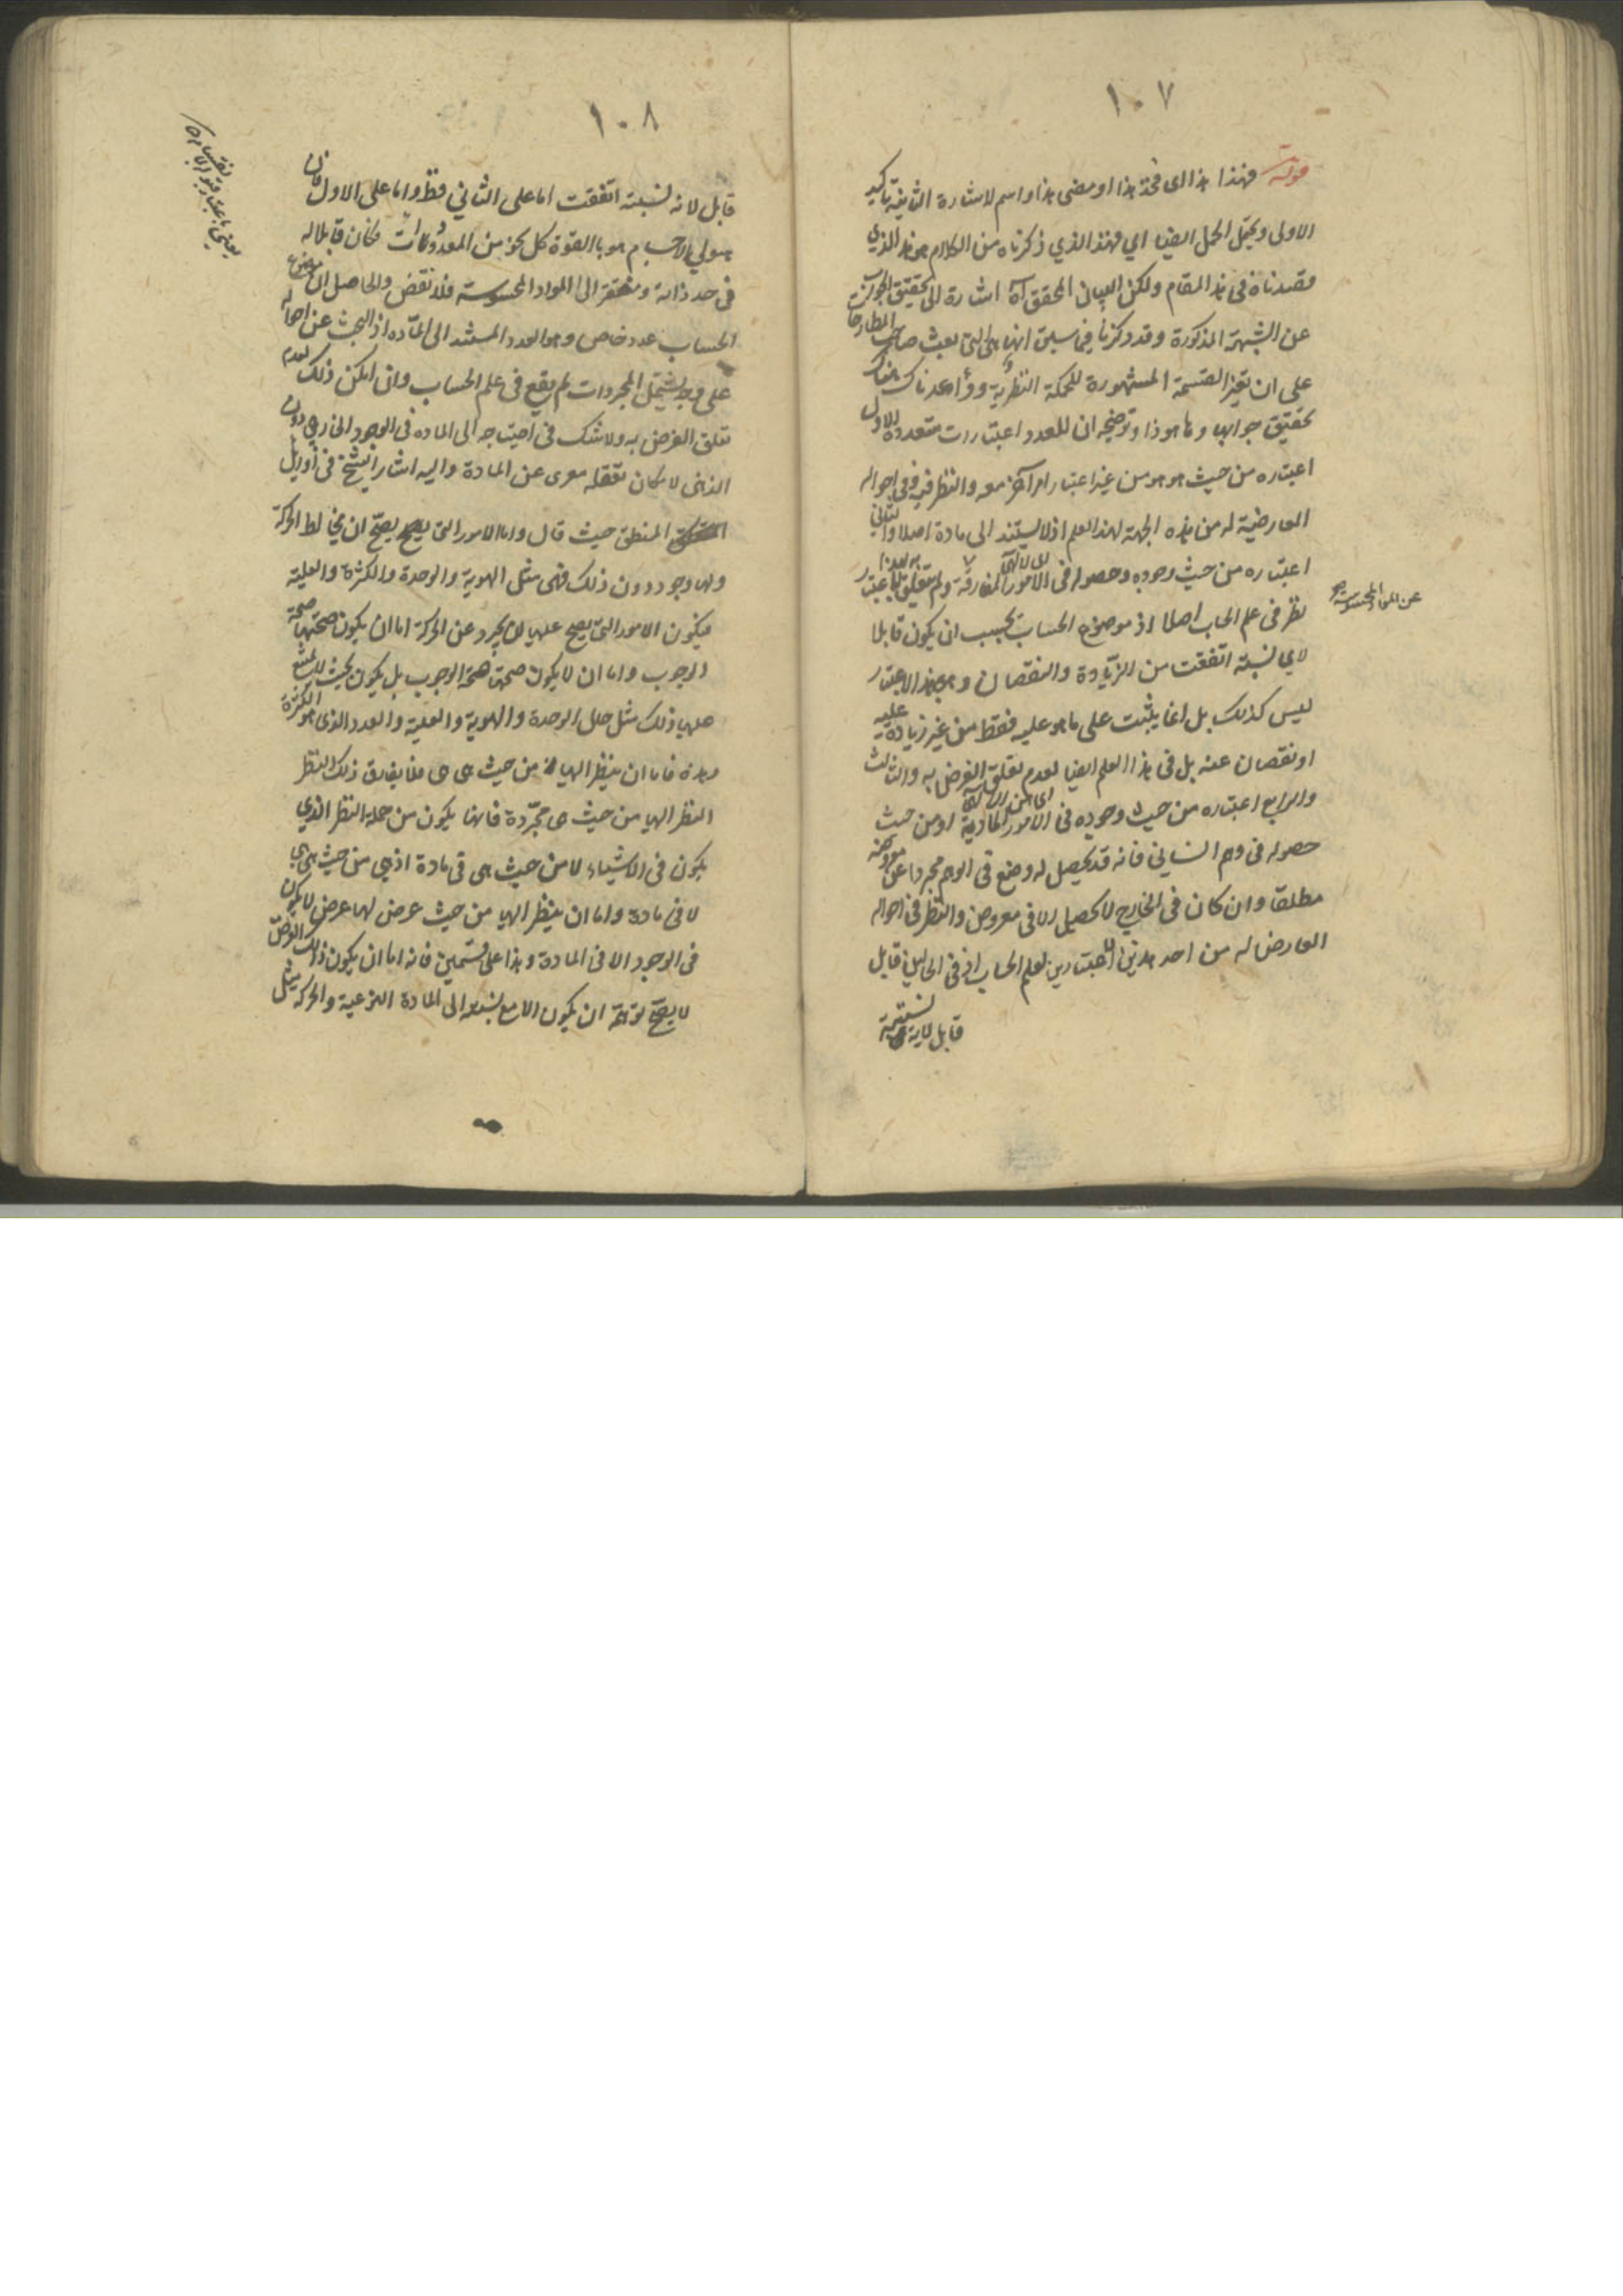 ١٠٧
قوله فهذا هذا اى فخذ هذا او مضى هذا واسم الاشارة الثانية تاكيد
الاولى ويحتمل الحمل ايضا اي فهذا الذي ذكرناه من الكلام هو هذا الذي
قصدناه في هذا المقام ولكن البيان المحقق آه اشارة الى تحقيق الجواب
عن الشبهة المذكورة وقد ذكرنا فيما سبق انها هى التى بعثت صاحب المطارحات
على ان تغير القسمة المشهورة للحكمة النظرية ووعدناك هناك
تحقيق جوابها وها هو ذا وتوضيحه ان للعدد اعتبارات متعددة الاول
اعتباره من حيث هو هو من غير اعتبار امر آخر معه والنظر فيه وفى احواله
العارضية له من هذه الجهة لهذا العلم اذ لا يستند الى مادة اصلا والثاني
اعتباره من حيث وجوده وحصوله فى الامور المفارقة ولم يتعلق بهذا الاعتبار
عن المواد المحسوسة
نظر فى علم الحساب اصلا اذ موضوع الحساب يجب ان يكون قابلا
لاي نسبة اتفقت من الزيادة والنقصان وهو بهذا الاعتبار
ليس كذلك بل انما يثبت على ما هو عليه فقط من غير زيادة عليه
او نقصان عنه بل فى هذا العلم ايضا لعدم تعلق الغرض به والثالث
والرابع اعتباره من حيث وجوده فى الامور المادية او من حيث
حصوله فى وهم انساني فانه قد يحصل له وضع فى الوهم مجردا عن معروضه
مطلقا وان كان فى الخارج لا يحصل الا فى معروض والنظر فى احواله
العارض له من احد هذين الاعتبارين لعلم الحساب اذ فى الحالين قابل
قابل لاية نسبة
١٠٨
قابل لانه نسبته اتفقت اما على الثاني فظ واما على الاول فان
هيولي الاجسام هو بالقوة كل نحو من المعدودات فكان قابلا له
فى حد ذاته ومفتقر الى المواد المحسوسة فلا نقض والحاصل ان موضوع
الحساب عدد خاص وهو العدد المستند الى المادة اذ البحث عن احواله
على وجه يشتمل المجردات لم يقع فى علم الحساب وان امكن ذلك لعدم
تعلق الغرض به ولا شك فى احتياجه الى الماده فى الوجود الخارجى دون
الذهنى لامكان تعقله معرى عن المادة واليه اشار الشيخ فى اوايل
المنطق حيث قال واما الامور التى يصح ان يخالط الحركة
ولها وجود دون ذلك فهى مثل الهوية والوحدة والكثرة والعلية
فيكون الامور التى يصح عليها ان يجرد عن الحركة اما ان يكون صحتها صحة
الوجوب واما ان لا يكون صحتها صحة الوجوب بل يكون بحيث لا يمتنع
عليها ذلك مثل حال الوحدة والهوية والعلية والعدد الذى هو الكثرة
وهذه فاما ان ينظر اليها من حيث هى هى فلا يفارق ذلك النظر
النظر اليها من حيث هى مجردة فانها يكون من جملة النظر الذي
يكون فى الاشياء لا من حيث هى فى مادة اذ هي من حيث هى هى
لا فى مادة واما ان ينظر اليها من حيث عرض لها عرض لا يكون
فى الوجود الا فى المادة وهذا على قسمين فانه اما ان يكون ذلك العرض
لا يصح توهمه ان يكون الا مع نسبته الى المادة النوعية والحركة مثل